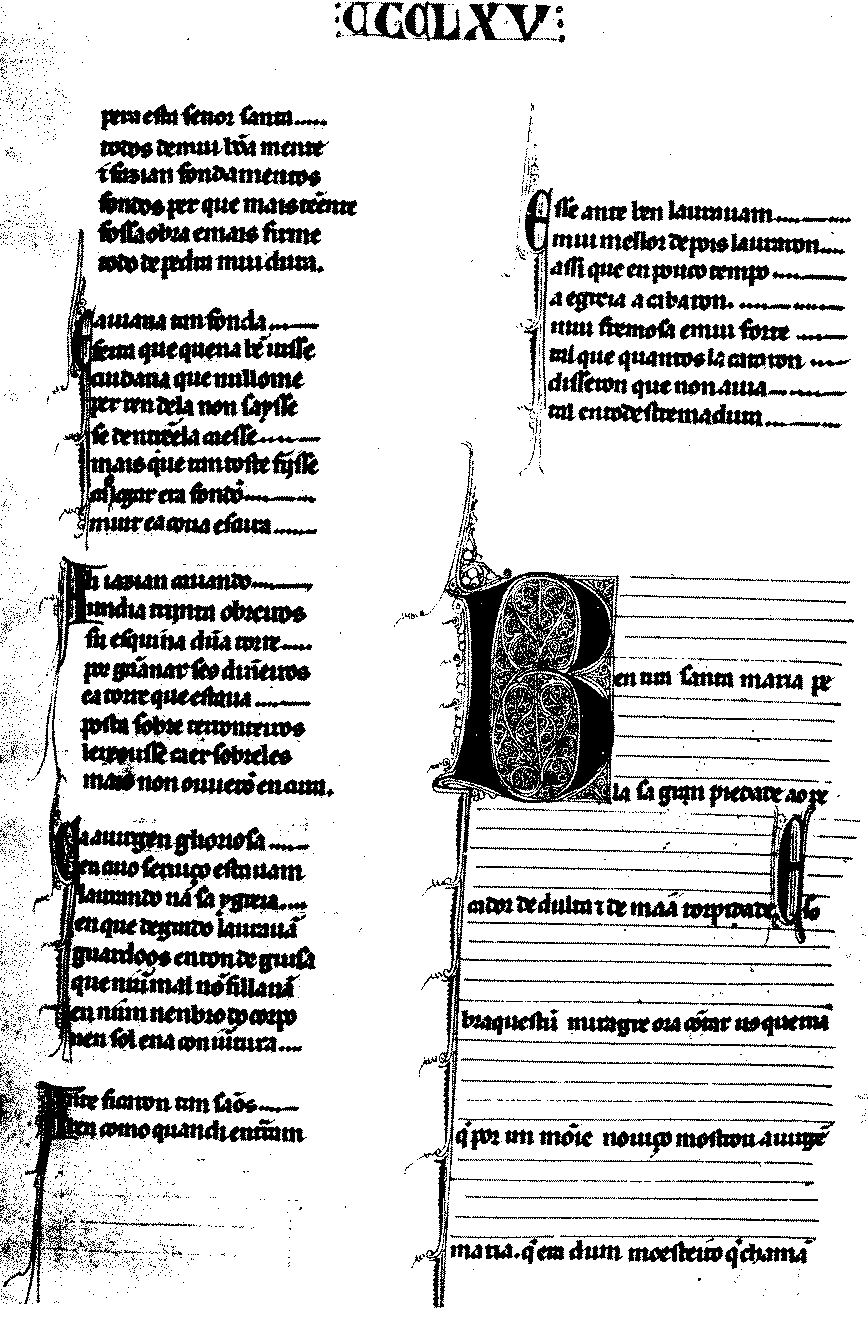 CCCLXV
pera esta senor santa.....
todos de mui bõa mente
τ fazian fondamentos
fondos per que mais tẽente
fossa obra e mais firme
todo de pedra mui dura.
Cauidand a tan fonda
serra que quena bẽ uisse
cuidaria que null ome
per ren dela non saysse
se dentrela caesse
mais que tan toste fijsse
assi que era fondo
muit ea coua escura
Eli iazian cauando
un dia triinta obreiros
su esquina dũa torre
por gãannar seos dineiros
ea torre que estaua
posta sobre teironteiros
leixousse caer sobreles
mais non ouuerõ en cura.
Ca a uirgen groriosa
en cuo seruiço estauan
laurando na sa ygreia
en que de grado laurauã
guardoos enton de guisa
que niũ mal nõ fillarã
en niun nenbro do corpo
nen sol ena conniutura
Ante ficaron tan sãos
ben como quand i entrran
E sse ante ben laurauan
mui mellor depois lauraron
assi que en pouco tempo
a egreia acabaron.
mui fremosa e mui forte
tal que quantos la cataron
disseron que non auia
tal en todestremadura
Ben tira santa maria pe
la sa gran piedade ao pe
cador de dulta τ de maa torpidade E so
braquesto miragre ora cõtar uos querria
q̃ por un mõie nouiço mostrou a uirgẽ
maria. q̃ era dun moesteiro q̃ chamã